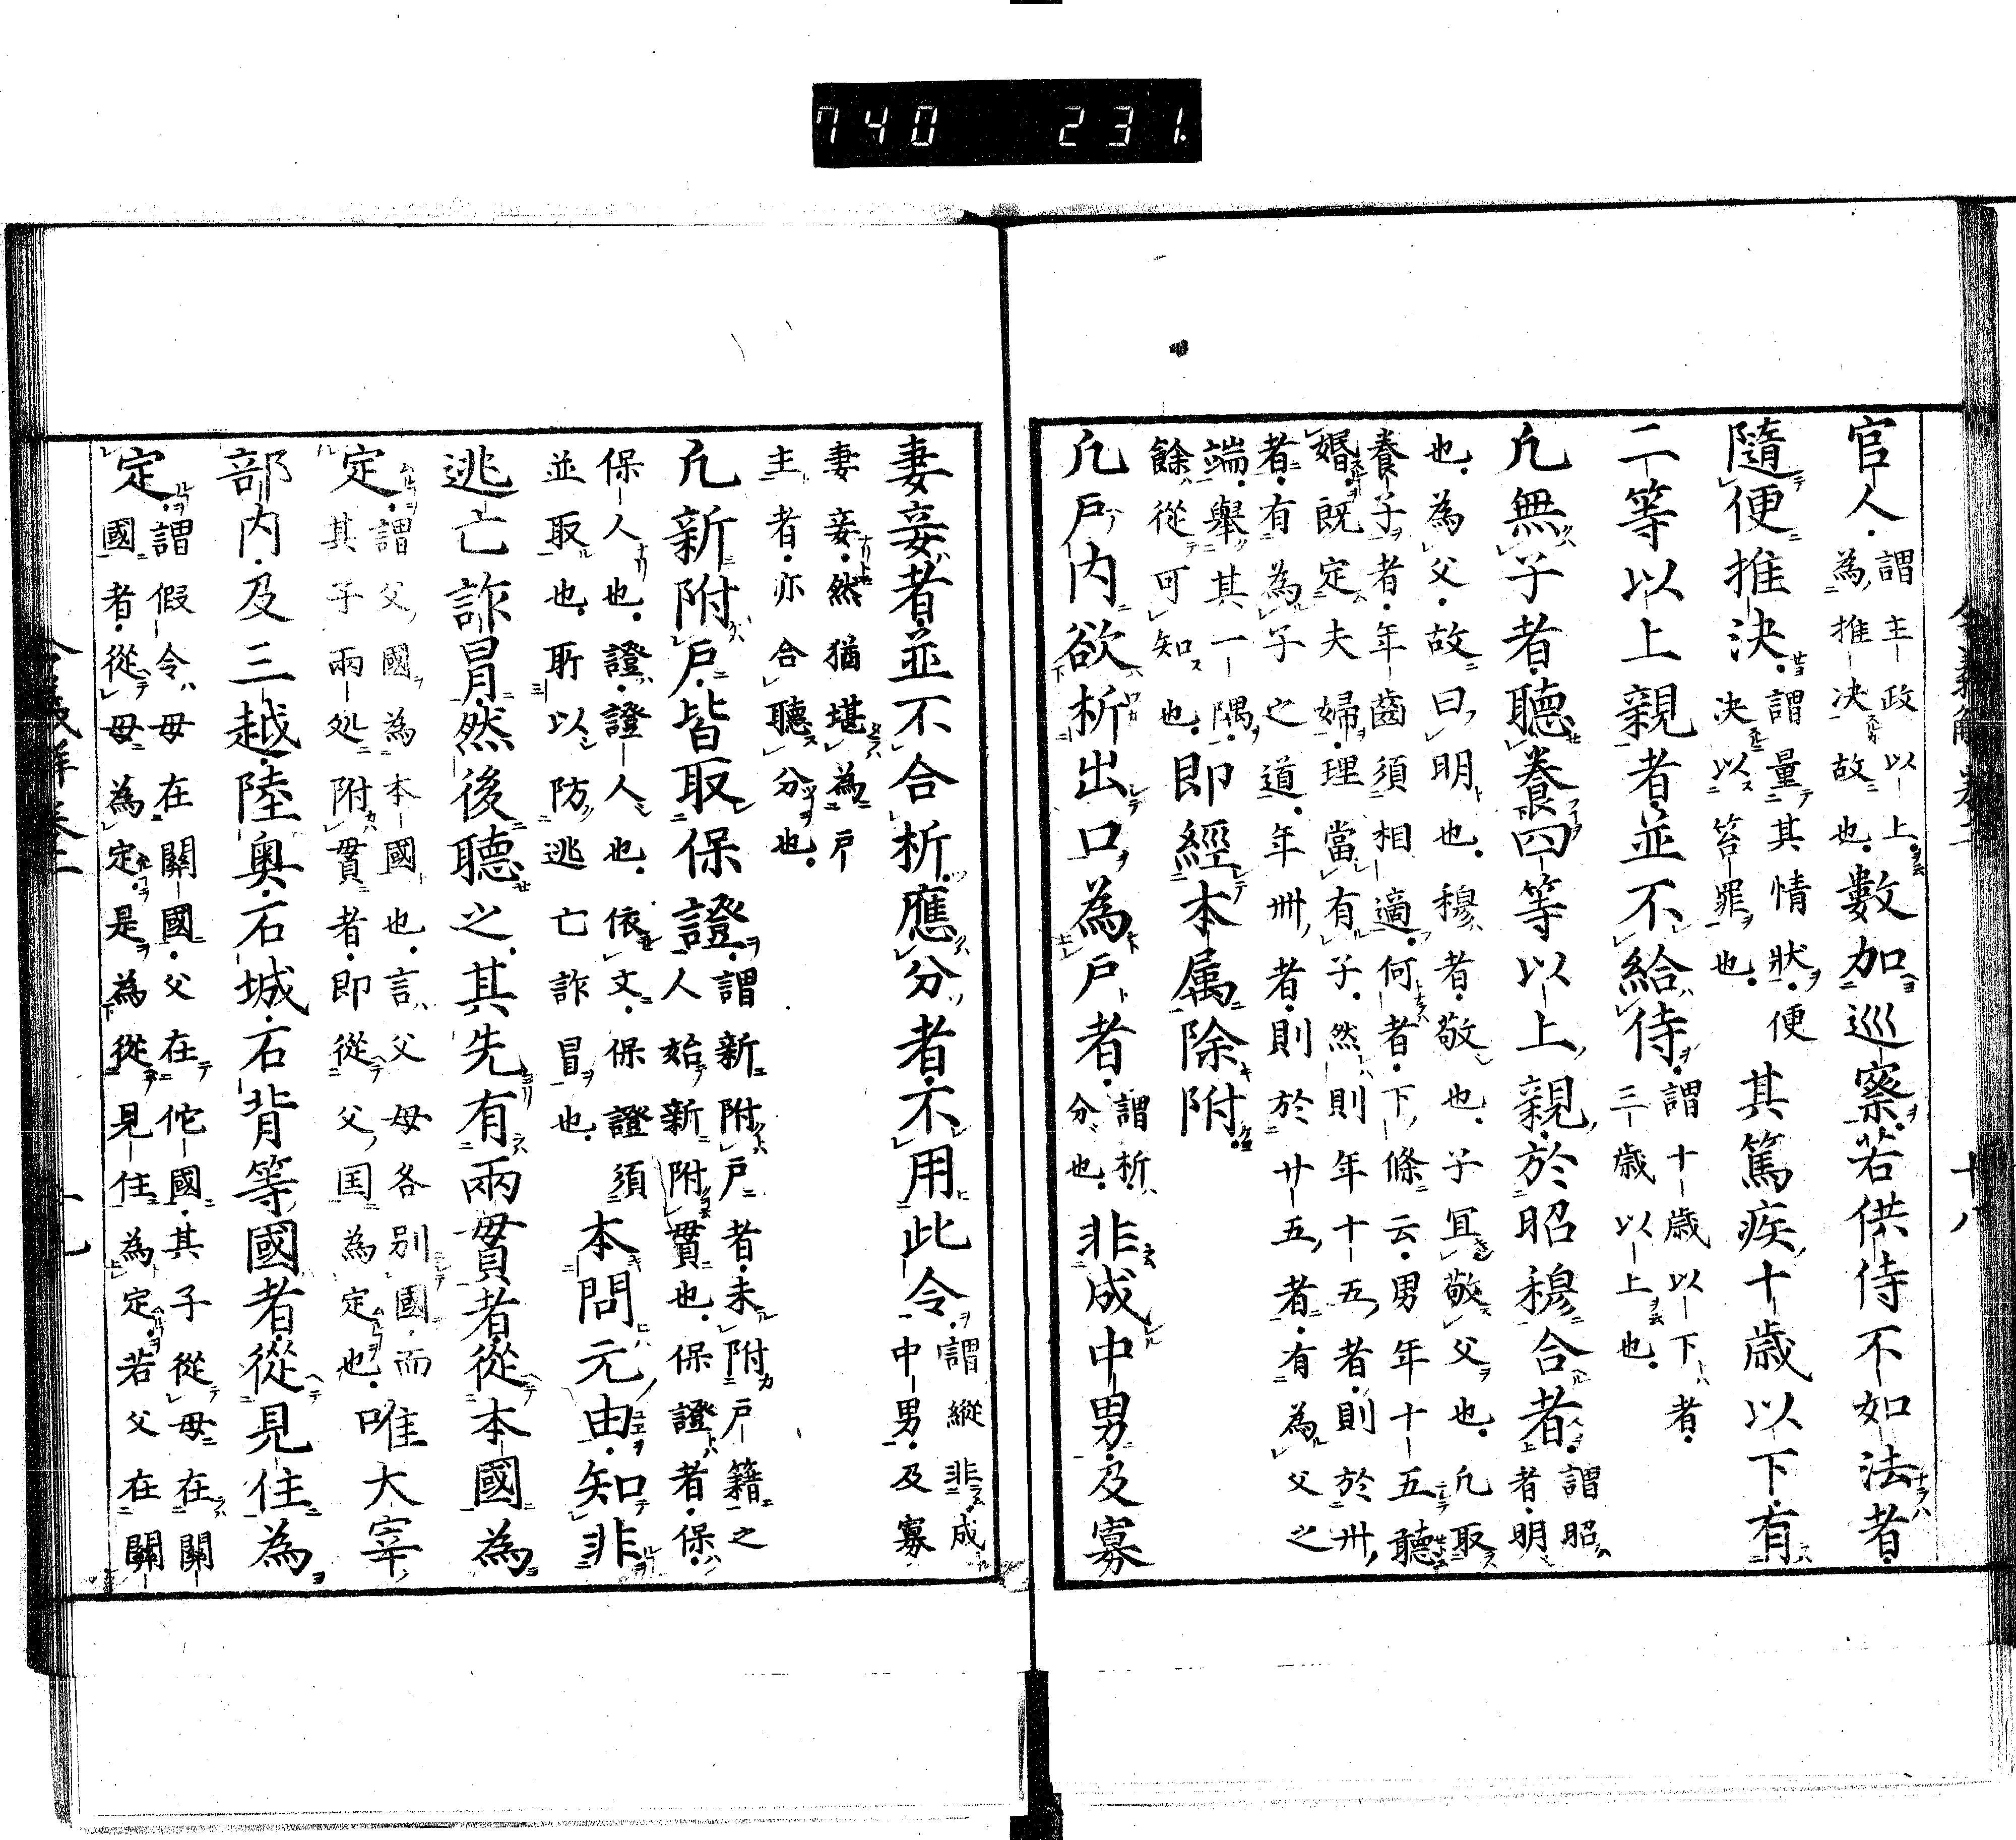 740 231
官人。謂主政以上。為推決故也。數加巡察。若供侍不如法者。
隨便推決。謂量其情狀。便決以笞罪也。其篤疾十歲以下。有
二等以上親者。並不給侍。謂十歲以下者。三歲以上也。
凢無子者。聽養四等以上親。於昭穆合者。謂昭者。明
也。為父。故曰明也。穆者。敬也。子冝敬父也。凢取
養子者。年齒須相適。何者。下條云。男年十五聽
婚。既定夫婦。理當有子。然則年十五者。則於卅
者。有為子之道。年卌者。則於廿五者。有為父之
端。舉其一隅。
餘從可知也。即經本属除附。
凢戶內欲析出口為戶者。謂析分也。非成中男。及寡
妻妾者。並不合析。應分者。不用此令。謂縱非成中男。及寡
妻妾。然猶堪為戶
主者。亦合聽分也。
凢新附戶。皆取保證。謂新附戶者。未附戶籍之人始新附貫也。保證者。保
保人也。證。證人也。依文。保證須
並取也。所以防逃亡詐冒也。本問元由。知非
逃亡詐冒。然後聽之。其先有兩貫者。從本國為
定。謂父國為本國也。言父母各別國。而其子兩処附貫者。即從父国為定也。唯大宰
部內。及三越。陸奥。石城。石背等國者。從見住為
定。謂假令母在關國。父在佗國。其子從母在關國者。從母為定。是為從見住為定。若父在關
令義解卷二 十八